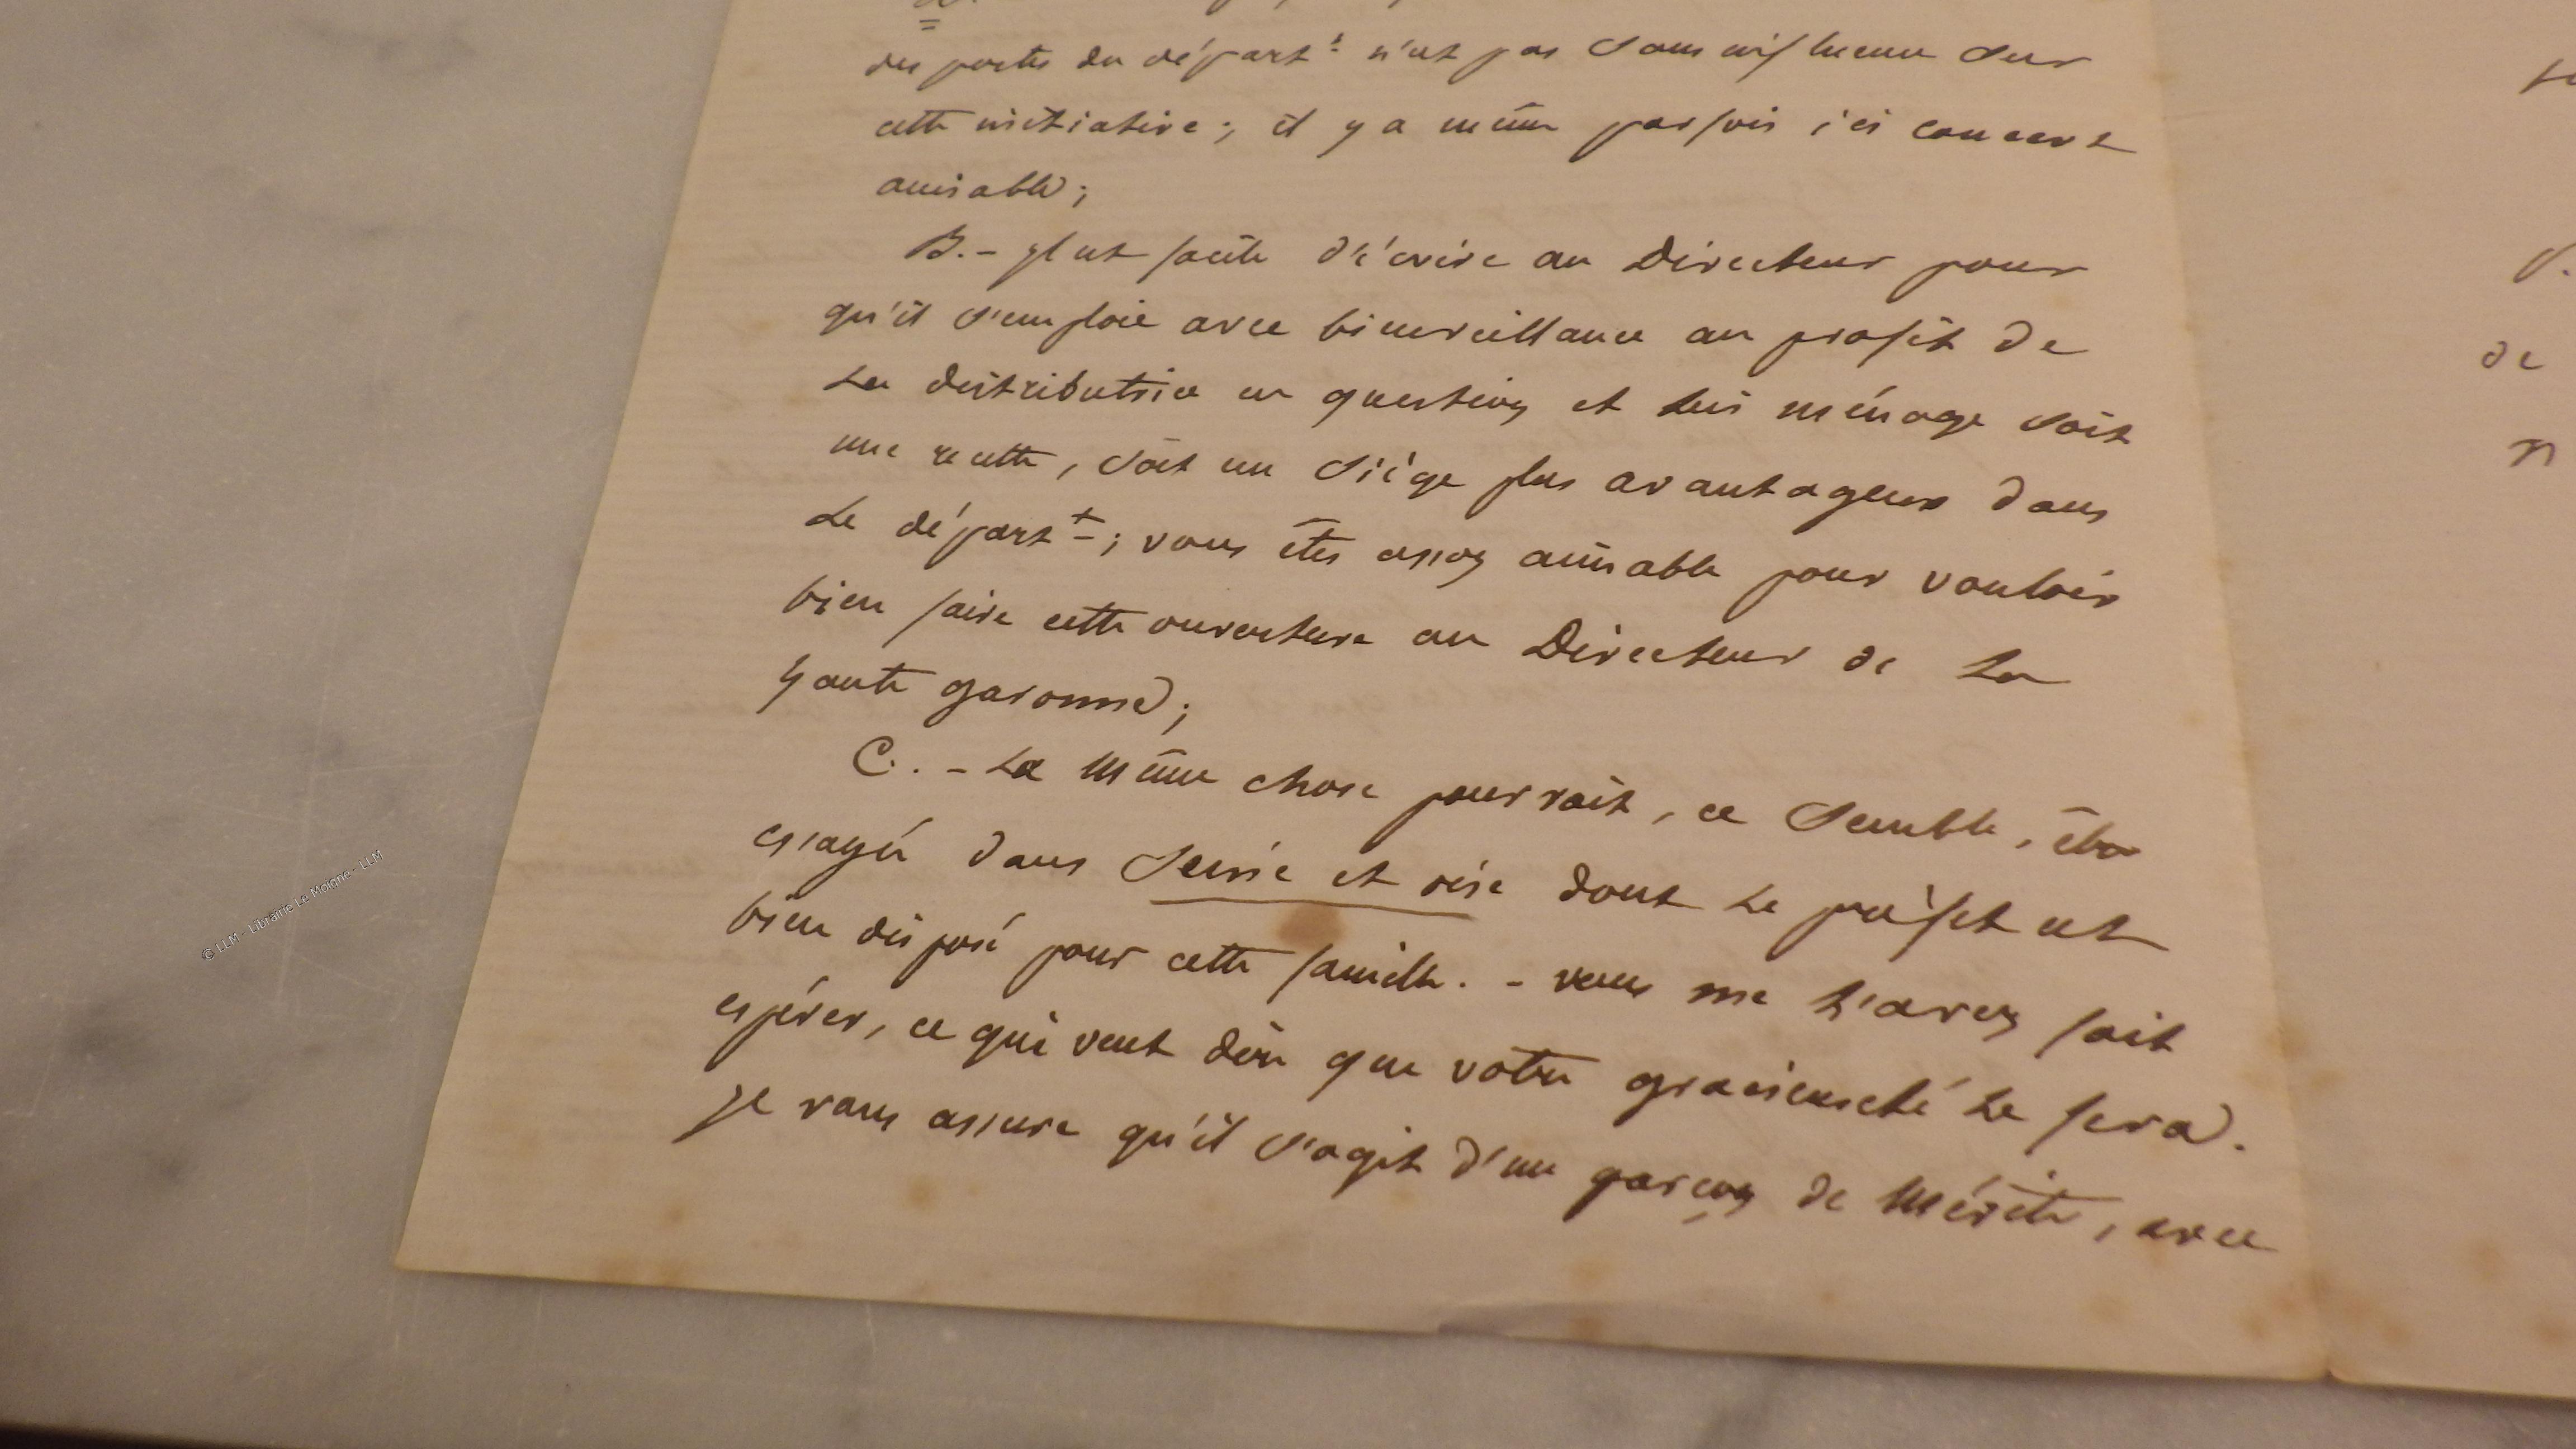 des postes du départt n'est pas sans influence sur
cette initiative ; il y a même parfois ici concert
amiable ;
B. - Il est facile d'écrire au Directeur pour
qu'il s'emploie avec bienveillance au profit de
la distribution en question et lui ménage soit
une recette, soit un siège plus avantageux dans
le départt ; vous êtes assez aimable pour vouloir
bien faire cette ouverture au Directeur de la
haute garonne ;
C. - La même chose pourrait, ce semble, être
essayée dans Seine et oise dont le préfet est
bien disposé pour cette famille. - vous me l'avez fait
espérer, ce qui veut dire que votre gracieuseté le fera.
Je vous assure qu'il s'agit d'un garçon de mérite, avec
de
© LLM - Librairie Le Moigne - LLM